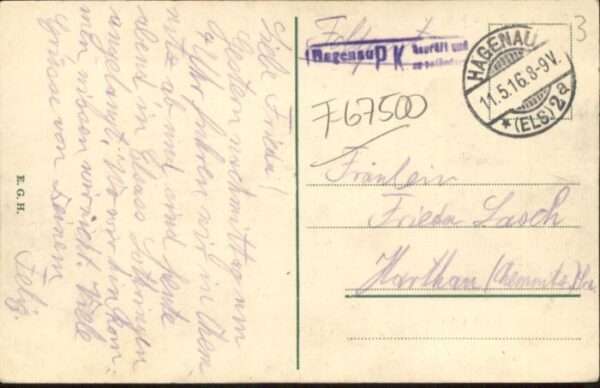 Liebe Frieda!
Gestern nachmittag um
4 Uhr fuhren wir in Chem
nitz ab und sind heute
abend in Elsas Lothringen
angelangt. Wo wir hin kom:
men wissen wir nicht. Viele
Grüsse von Deinem
Felix.
E. G. H.
Feldpost
Hagenau P K Geprüft und
HAGENAU
11.5.16.8-9V.
*(ELS.)2a
3
F67500
Fräulein
Frieda Lasch
Harthau (Chemnitz)